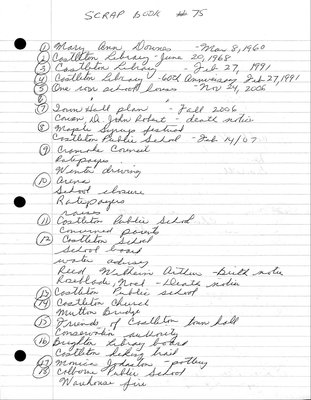 SCRAP BOOK # 75
① Mary Ann Downes - Mar 8, 1960
② Castleton Library - June 20, 1968
③ Castleton Library - Feb 27, 1991
④ Castleton Library - 60th Anniversary Feb 27, 1991
⑤ One room school houses - Nov 24, 2006
⑥ " " "
⑦ Town Hall plan - Fall 2006
Coxon, Dr. John Robert - death notice
⑧ Maple Syrup festival
Castleton Public School - Feb 14/07
⑨ Cramahe Council
Ratepayers
Winter driving
⑩ Arena
School closure
Ratepayers
raises
⑪ Castleton Public School
Concerned parents
⑫ Castleton School
School board
water advisory
Reed Arthur - Birth notice
Noel - Death notice
⑬ Castleton Public school
⑭ Castleton Church
Mutton Bridge
⑮ Friends of Castleton town hall
Conservation authority
⑯ Brighton library board
Castleton hiking trail
⑰ Monica Johnston - pottery
⑱ Colborne Public School
Warehouse fire